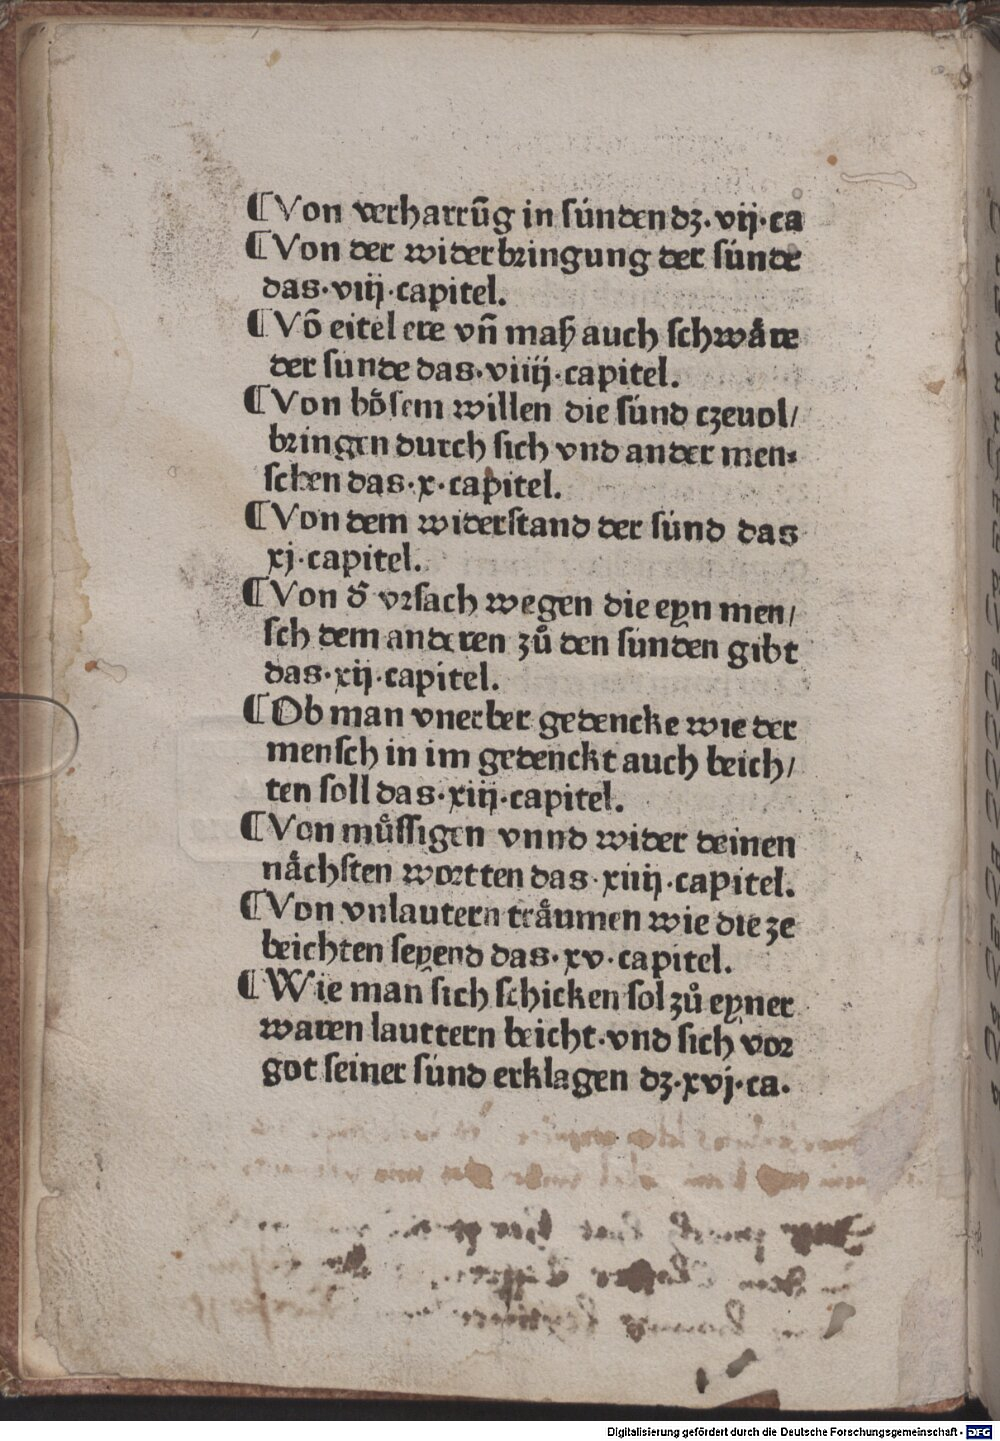 ¶Von verharrūg in súnden dꝫ·vij·ca
¶Von der widerbringung der súnde
das·viij·capitel.
¶Võ eitel ere vn̄ maß auch schwåre
der sunde das·viiij·capitel.
¶Von bo᷑sem willen die súnd czeuol/
bringen durch sich vnd ander men⸗
schen das·x·capitel.
¶Von dem widerstand der súnd das
xj·capitel.
¶Von d᷑ vrsach wegen die eyn men/
sch dem anderen zů den sunden gibt
das·xij·capitel.
¶Ob man vnerber gedencke wie der
mensch in im gedenckt auch beich/
ten soll das·xiij·capitel.
¶Von mu᷑ssigen vnnd wider deinen
nåchsten wortten das·xiiij·capitel.
¶Von vnlautern tråumen wie die ze
beichten seyend das·xv·capitel.
¶Wie man sich schicken sol zů eyner
waren lauttern beicht·vnd sich vor
got seiner súnd erklagen dꝫ·xvj·ca.
Digitalisierung gefördert durch die Deutsche Forschungsgemeinschaft - DFG